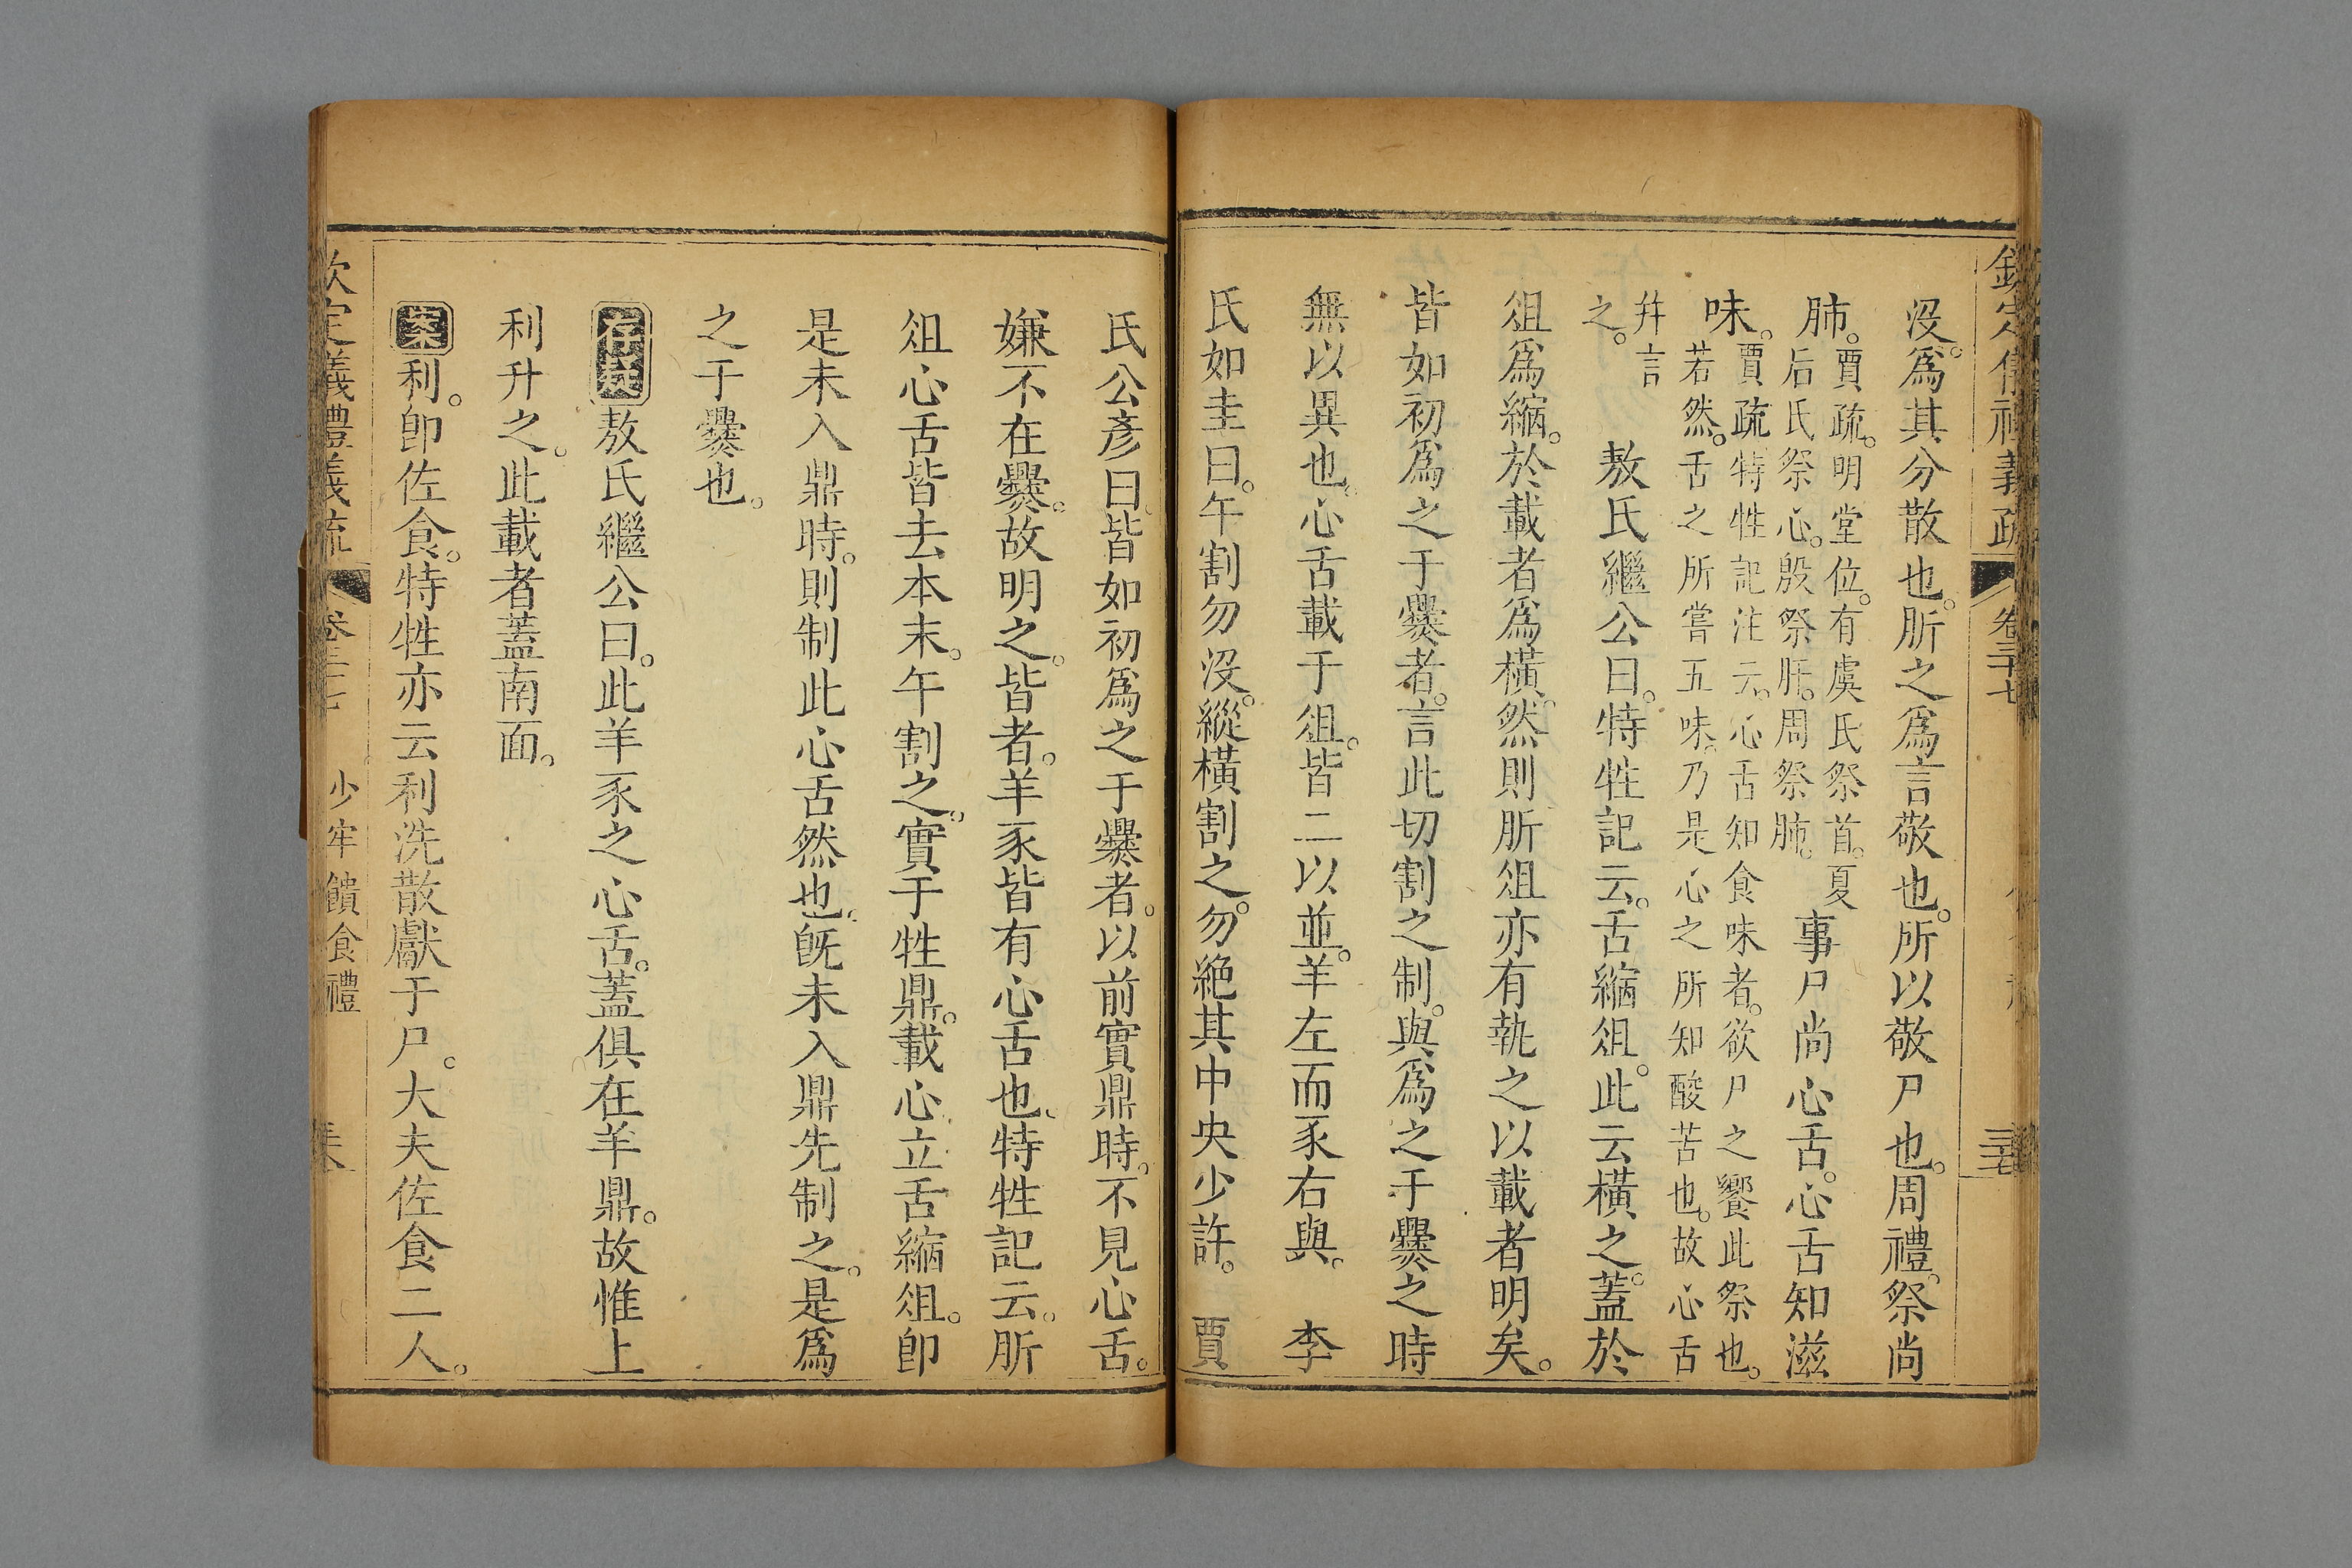 欽定儀禮義疏 卷三十七 三七
沒。爲其分散也。肵之爲言敬也。所以敬尸也。周禮。祭尚
肺。賈疏。明堂位。有虞氏祭首。夏后氏祭心。殷祭肝。周祭肺。事尸尚心舌。心舌知滋
味。賈疏特牲記注云。心舌知食味者。欲尸之饗此祭也。若然。舌之所嘗五味。乃是心之所知酸苦也。故心舌
并言之。敖氏繼公曰。特牲記云。舌縮俎。此云橫之。蓋於
俎爲縮。於載者爲橫。然則肵俎亦有執之以載者明矣。
皆如初爲之于爨者。言此切割之制。與爲之于爨之時
無以異也。心舌載于俎。皆二以並。羊左而豕右與。李
氏如圭曰。午割勿沒。縱橫割之。勿絕其中央少許。賈
氏公彥曰。皆如初爲之于爨者。以前實鼎時。不見心舌。
嫌不在爨。故明之。皆者。羊豕皆有心舌也。特牲記云。肵
俎心舌皆去本末。午割之。實于牲鼎。載心立舌縮俎。卽
是未入鼎時。則制此心舌然也。旣未入鼎先制之。是爲
之于爨也。
存疑敖氏繼公曰。此羊豕之心舌。蓋俱在羊鼎。故惟上
利升之。此載者蓋南面。
案利。卽佐食。特牲亦云利洗散獻于尸。大夫佐食二人。
欽定義禮義疏 卷三十七 少牢饋食禮